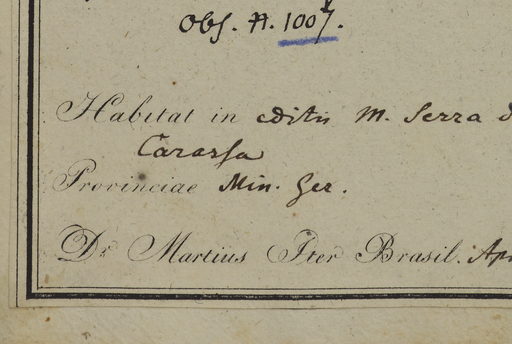 Obs. N. 1007.
Habitat in editis M. Serra d
Carassa
Provinciae Min. Ger.
Dr. Martius Iter Brasil. Apr